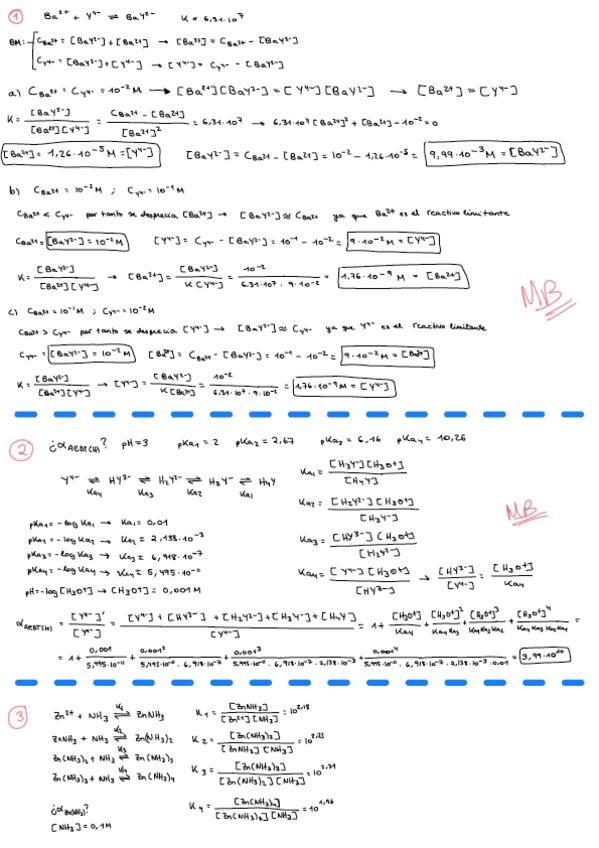 1 Ba²⁺ + Y⁴⁻ ⇌ BaY²⁻ K = 6,31·10⁷
BM: C_Ba²⁺ = [BaY²⁻] + [Ba²⁺] → [Ba²⁺] = C_Ba²⁺ - [BaY²⁻]
C_Y⁴⁻ = [BaY²⁻] + [Y⁴⁻] → [Y⁴⁻] = C_Y⁴⁻ - [BaY²⁻]
a) C_Ba²⁺ = C_Y⁴⁻ = 10⁻² M → [Ba²⁺][BaY²⁻] = [Y⁴⁻][BaY²⁻] → [Ba²⁺] = [Y⁴⁻]
K = [BaY²⁻] / [Ba²⁺][Y⁴⁻] = C_Ba²⁺ - [Ba²⁺] / [Ba²⁺]² = 6,31·10⁷ → 6,31·10⁷ [Ba²⁺]² + [Ba²⁺] - 10⁻² = 0
[Ba²⁺] = 1,26·10⁻⁵ M = [Y⁴⁻] [BaY²⁻] = C_Ba²⁺ - [Ba²⁺] = 10⁻² - 1,26·10⁻⁵ = 9,99·10⁻³ M = [BaY²⁻]
b) C_Ba²⁺ = 10⁻² M ; C_Y⁴⁻ = 10⁻¹ M
C_Ba²⁺ < C_Y⁴⁻ por tanto se desprecia [Ba²⁺] → [BaY²⁻] ≈ C_Ba²⁺ ya que Ba²⁺ es el reactivo limitante
C_Ba²⁺ = [BaY²⁻] = 10⁻² M [Y⁴⁻] = C_Y⁴⁻ - [BaY²⁻] = 10⁻¹ - 10⁻² = 9·10⁻² M = [Y⁴⁻]
K = [BaY²⁻] / [Ba²⁺][Y⁴⁻] → [Ba²⁺] = [BaY²⁻] / K[Y⁴⁻] = 10⁻² / 6,31·10⁷ · 9·10⁻² = 1,76·10⁻⁹ M = [Ba²⁺]
MB
c) C_Ba²⁺ = 10⁻¹ M ; C_Y⁴⁻ = 10⁻² M
C_Ba²⁺ > C_Y⁴⁻ por tanto se desprecia [Y⁴⁻] → [BaY²⁻] ≈ C_Y⁴⁻ ya que Y⁴⁻ es el reactivo limitante
C_Y⁴⁻ = [BaY²⁻] = 10⁻² M [Ba²⁺] = C_Ba²⁺ - [BaY²⁻] = 10⁻¹ - 10⁻² = 9·10⁻² M = [Ba²⁺]
K = [BaY²⁻] / [Ba²⁺][Y⁴⁻] → [Y⁴⁻] = [BaY²⁻] / K[Ba²⁺] = 10⁻² / 6,31·10⁷ · 9·10⁻² = 1,76·10⁻⁹ M = [Y⁴⁻]
2 ¿α_AEDT(H)? pH=3 pKa₁ = 2 pKa₂ = 2,67 pKa₃ = 6,16 pKa₄ = 10,26
Y⁴⁻ ⇌ HY³⁻ ⇌ H₂Y²⁻ ⇌ H₃Y⁻ ⇌ H₄Y
Ka₄ Ka₃ Ka₂ Ka₁
Ka₁ = [H₃Y⁻][H₃O⁺] / [H₄Y]
Ka₂ = [H₂Y²⁻][H₃O⁺] / [H₃Y⁻]
Ka₃ = [HY³⁻][H₃O⁺] / [H₂Y²⁻]
Ka₄ = [Y⁴⁻][H₃O⁺] / [HY³⁻] → [HY³⁻] / [Y⁴⁻] = [H₃O⁺] / Ka₄
MB
pKa₁ = -log Ka₁ → Ka₁ = 0,01
pKa₂ = -log Ka₂ → Ka₂ = 2,138·10⁻³
pKa₃ = -log Ka₃ → Ka₃ = 6,918·10⁻⁷
pKa₄ = -log Ka₄ → Ka₄ = 5,495·10⁻¹¹
pH = -log [H₃O⁺] → [H₃O⁺] = 0,001 M
α_AEDT(H) = [Y⁴⁻]' / [Y⁴⁻] = [Y⁴⁻] + [HY³⁻] + [H₂Y²⁻] + [H₃Y⁻] + [H₄Y] / [Y⁴⁻] = 1 + [H₃O⁺] / Ka₄ + [H₃O⁺]² / Ka₄Ka₃ + [H₃O⁺]³ / Ka₄Ka₃Ka₂ + [H₃O⁺]⁴ / Ka₄Ka₃Ka₂Ka₁ =
= 1 + 0,001 / 5,495·10⁻¹¹ + 0,001² / 5,495·10⁻¹¹ · 6,918·10⁻⁷ + 0,001³ / 5,495·10⁻¹¹ · 6,918·10⁻⁷ · 2,138·10⁻³ + 0,001⁴ / 5,495·10⁻¹¹ · 6,918·10⁻⁷ · 2,138·10⁻³ · 0,01 = 3,99·10¹⁰
3 Zn²⁺ + NH₃ ⇌ ZnNH₃ K₁
ZnNH₃ + NH₃ ⇌ Zn(NH₃)₂ K₂
Zn(NH₃)₂ + NH₃ ⇌ Zn(NH₃)₃ K₃
Zn(NH₃)₃ + NH₃ ⇌ Zn(NH₃)₄ K₄
K₁ = [ZnNH₃] / [Zn²⁺][NH₃] = 10^2,18
K₂ = [Zn(NH₃)₂] / [ZnNH₃][NH₃] = 10^2,25
K₃ = [Zn(NH₃)₃] / [Zn(NH₃)₂][NH₃] = 10^2,31
K₄ = [Zn(NH₃)₄] / [Zn(NH₃)₃][NH₃] = 10^1,96
¿α_Zn(NH₃)?
[NH₃] = 0,1M